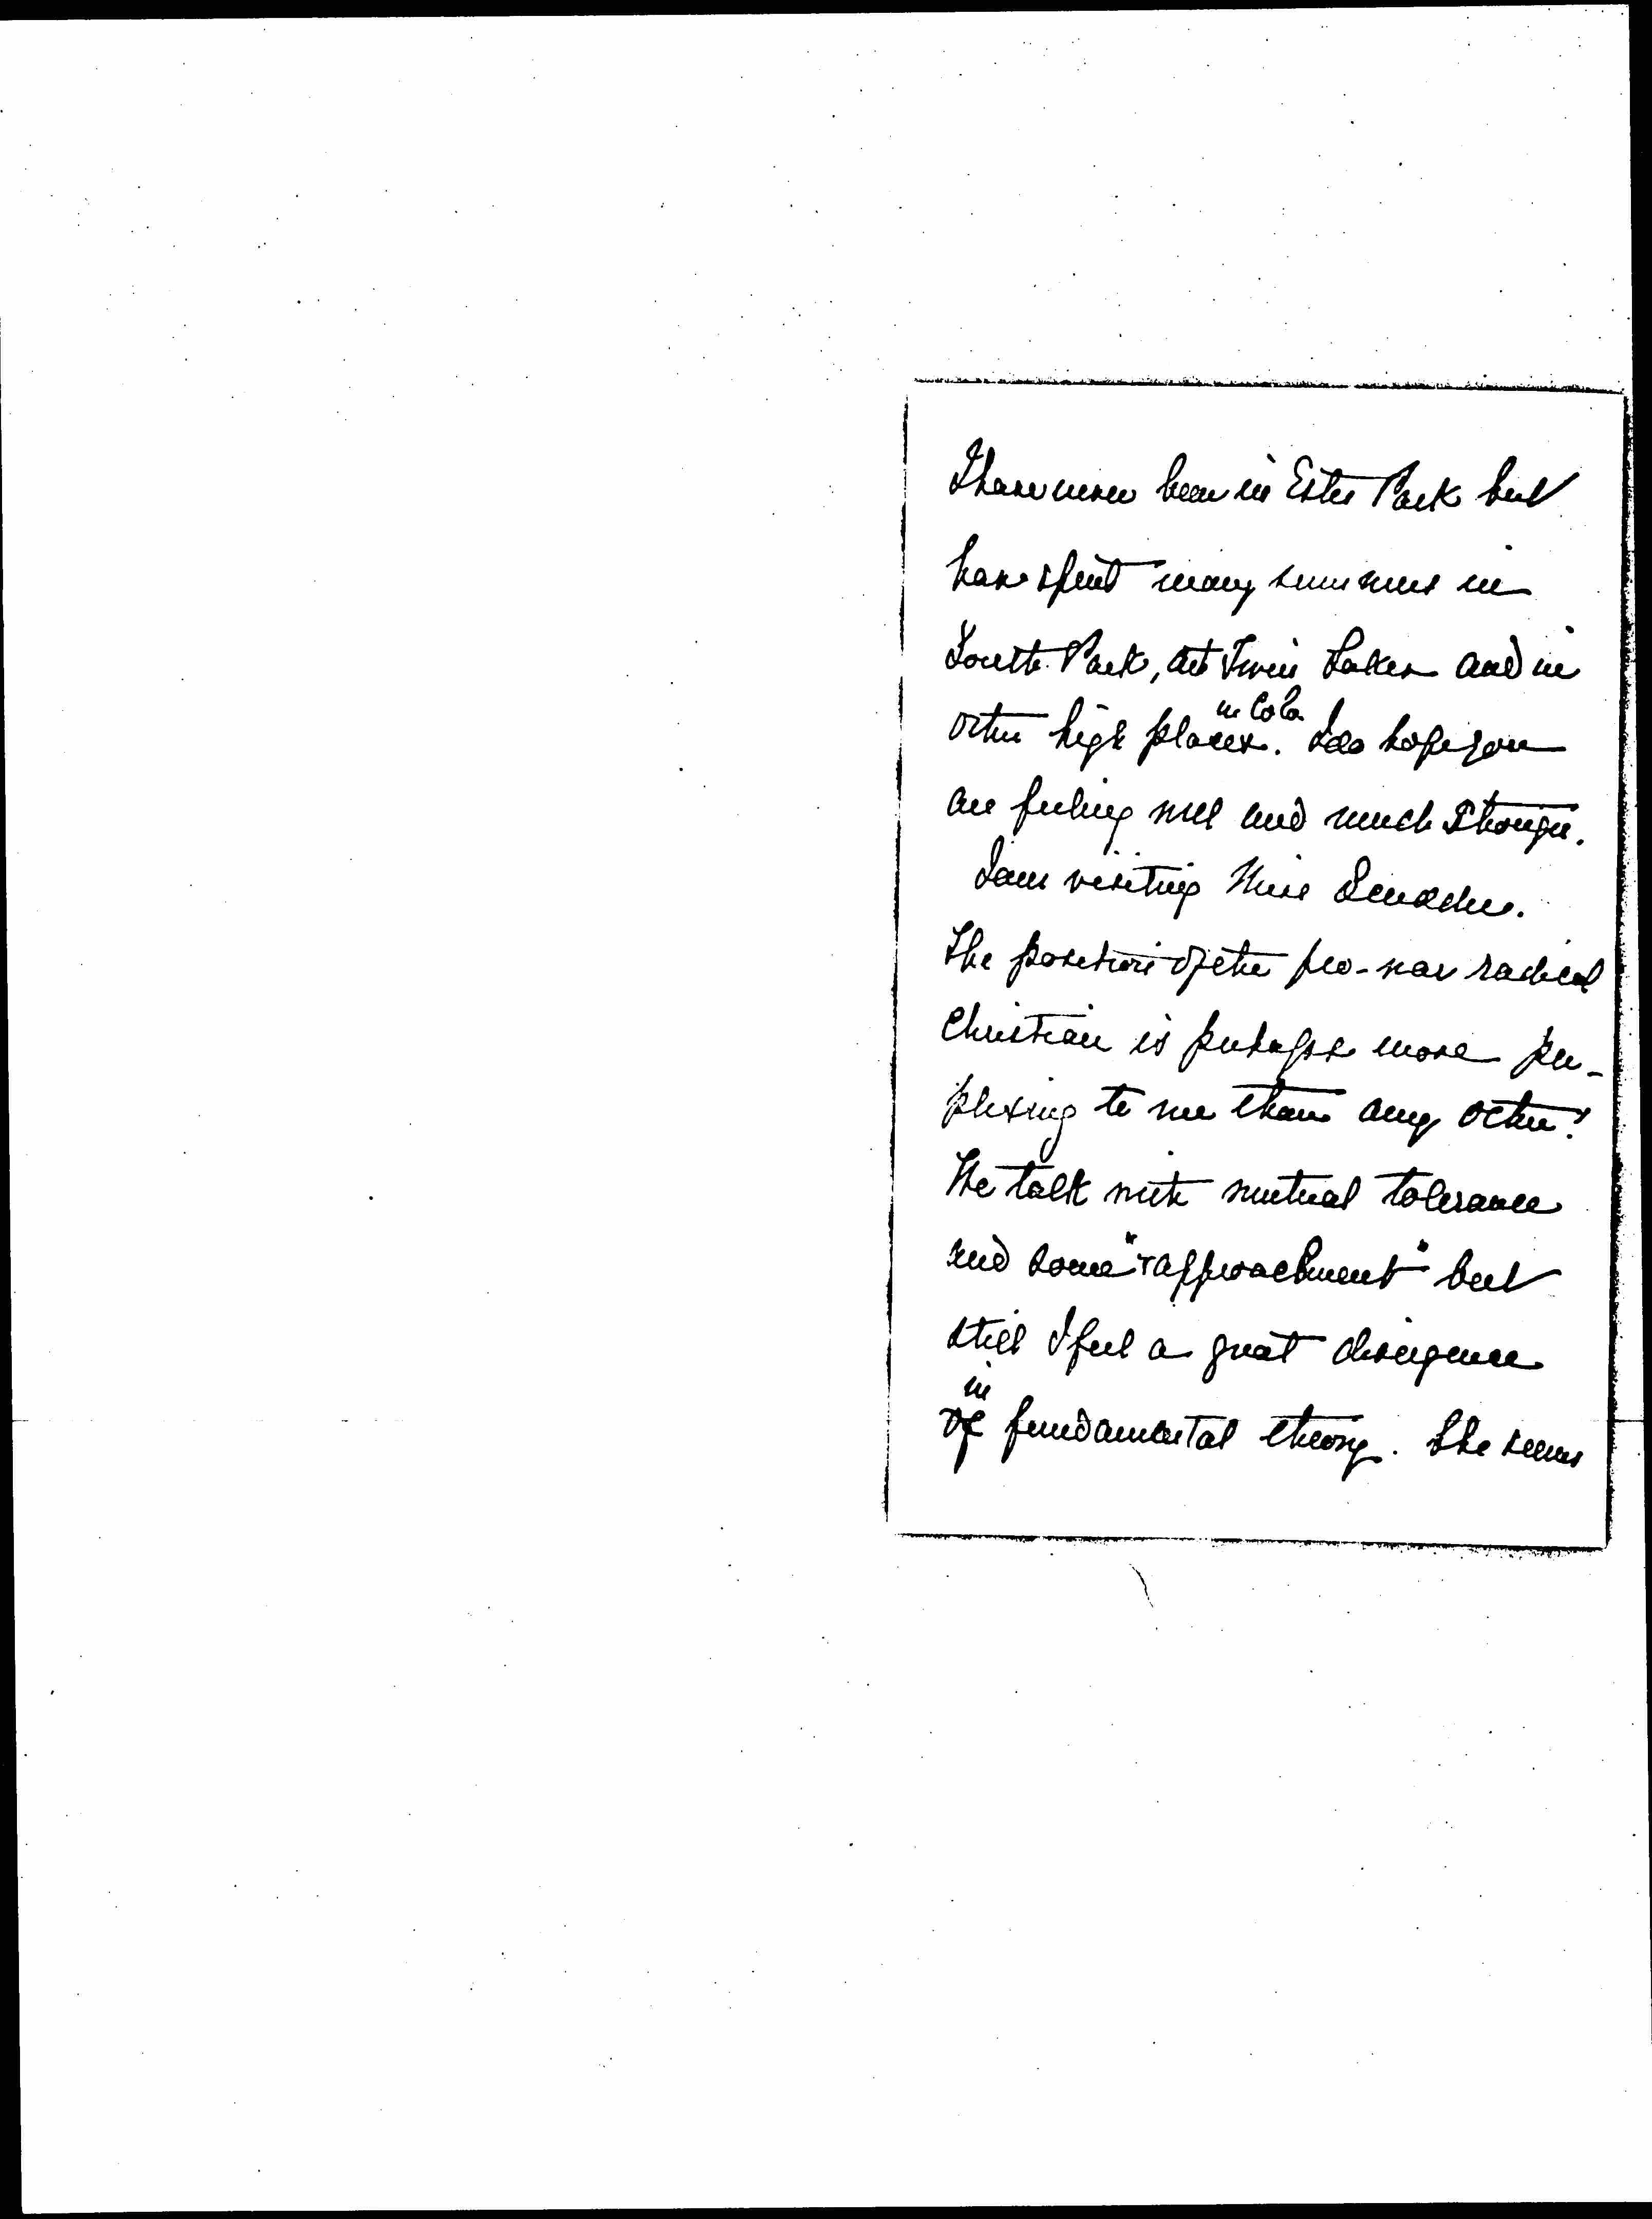 I have never been in Estes Park but
have spent many summers in
South Park, at Twin Lakes and in
other high places in Colo. I do hope you
are feeling well and much stronger.
I am visiting Miss Scudder.
The position of the pro-war radical
Christian is perhaps more per-
plexing to me than any other!
We talk with mutual tolerance
and some "rapproachment" but
still I feel a great divergence
in
of fundamental theory. She seems